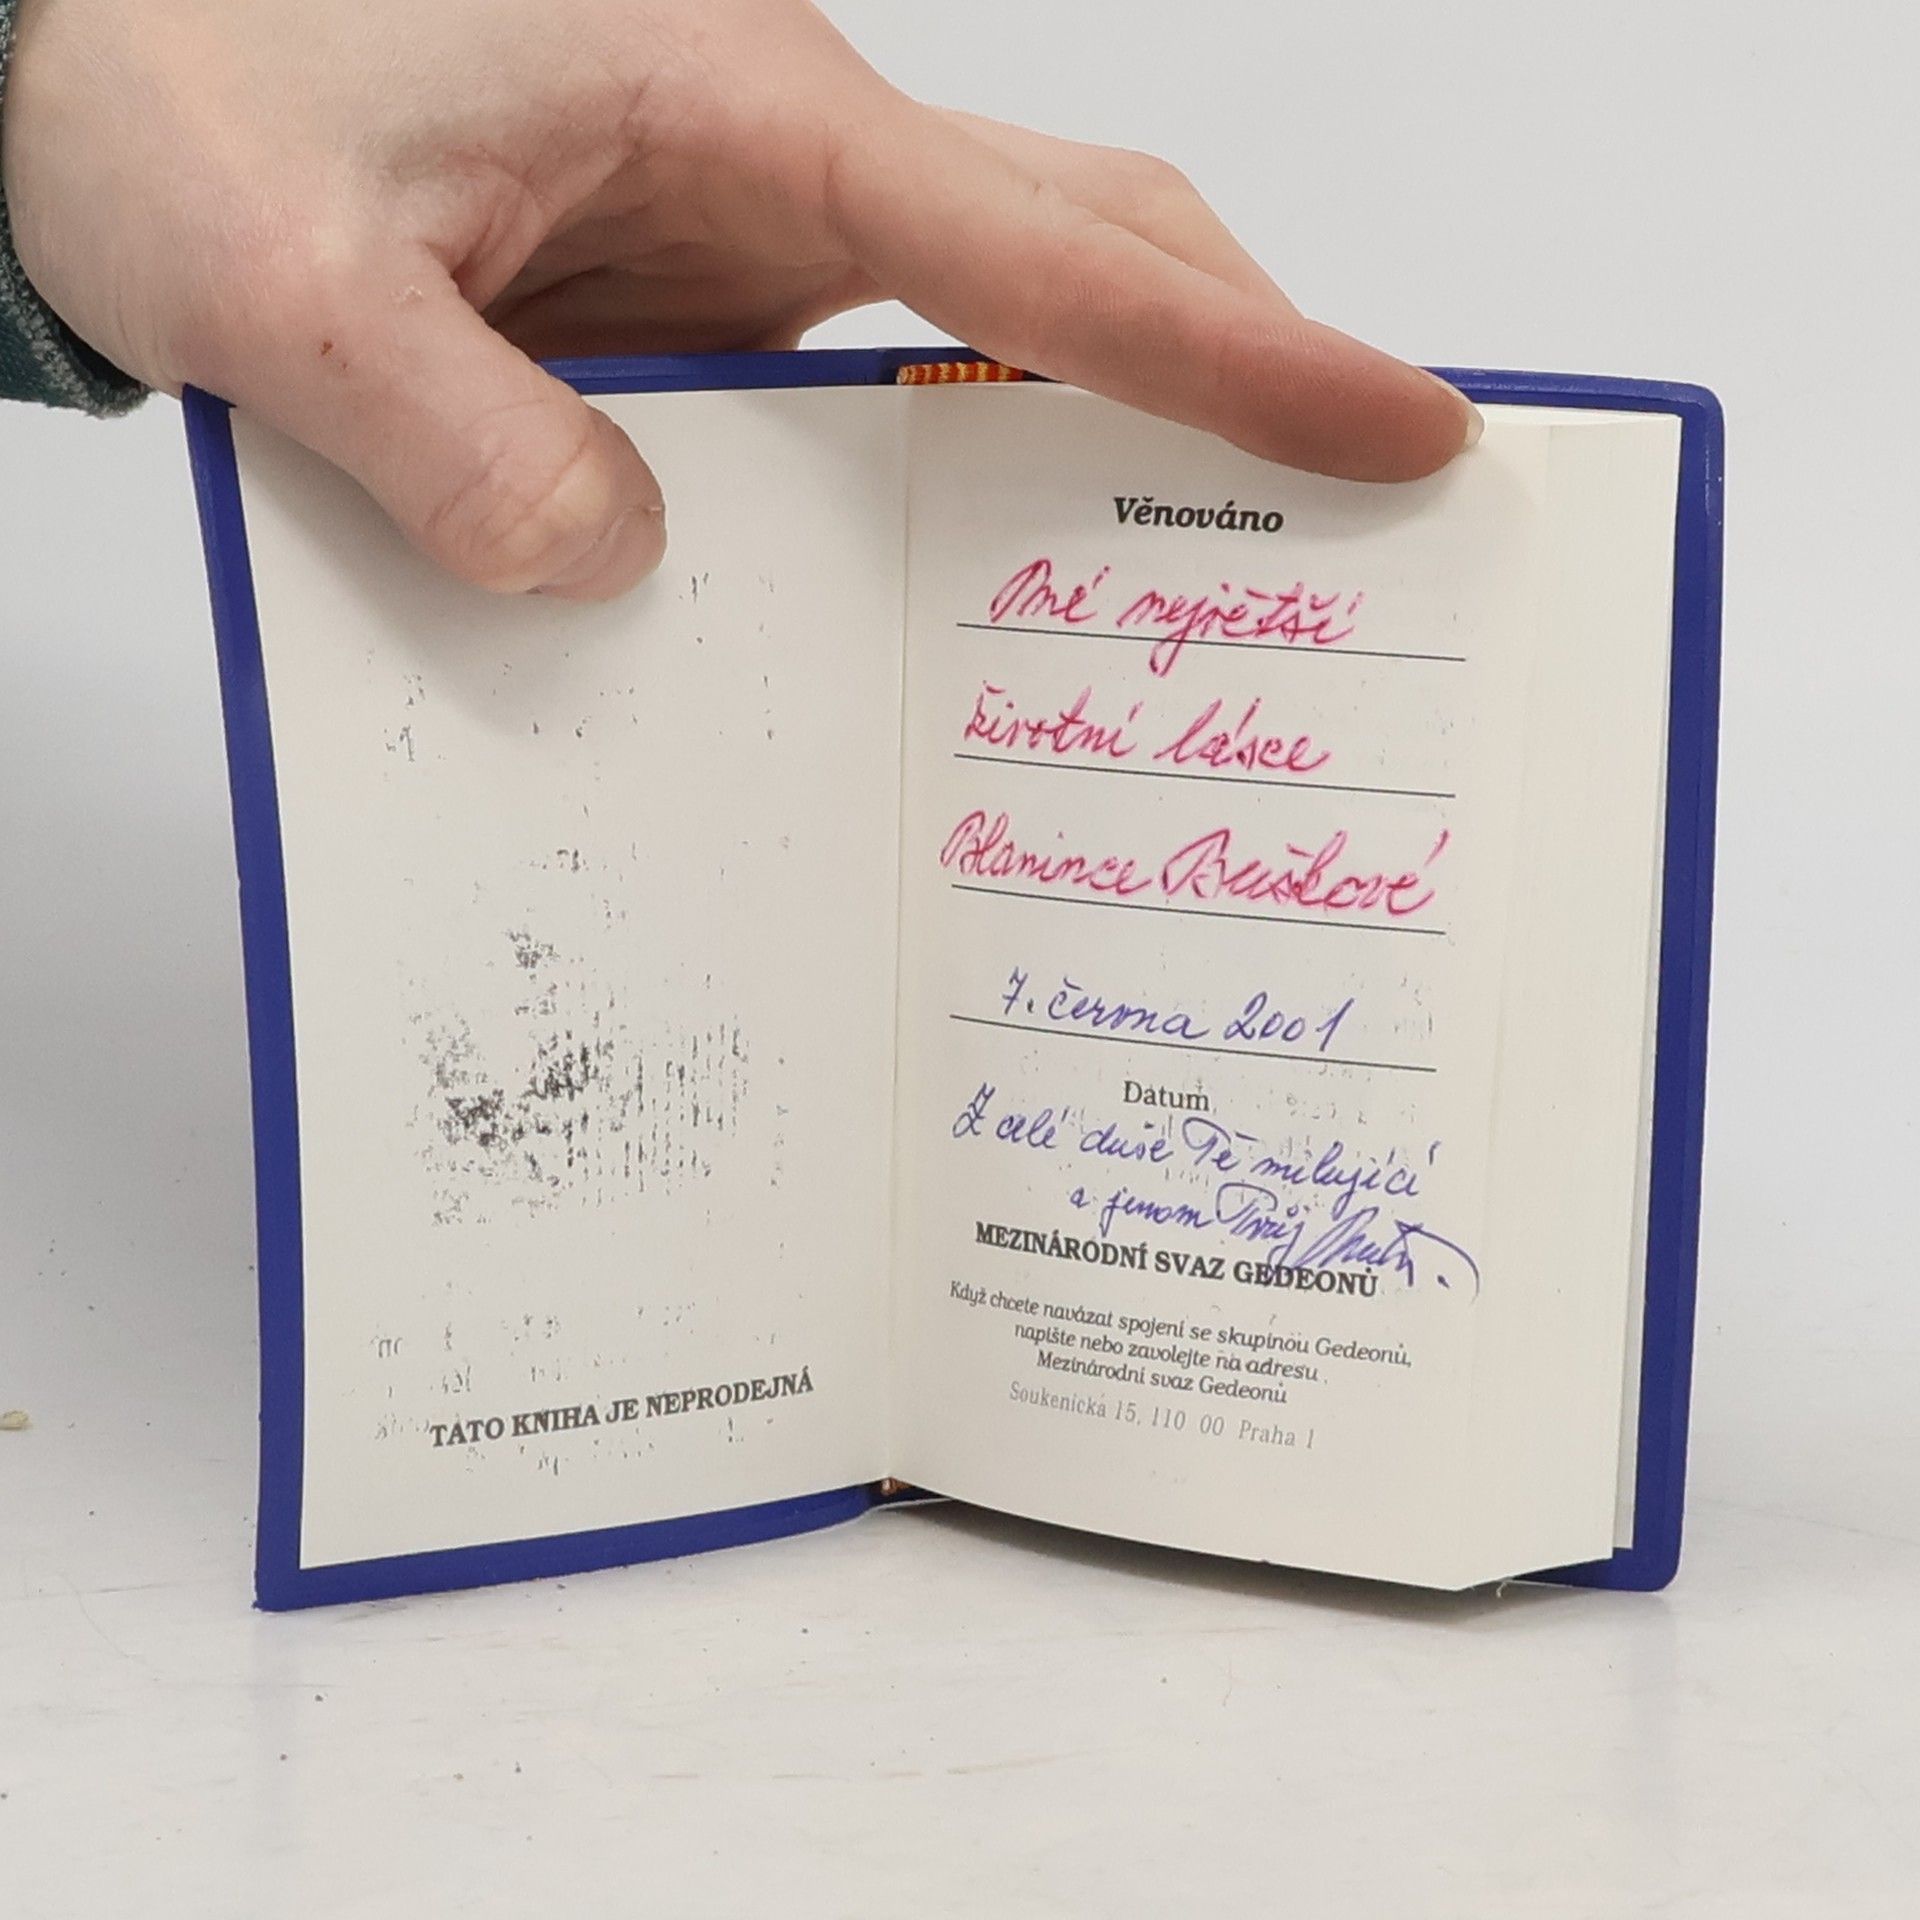 TATO KNIHA JE NEPRODEJNÁ
Věnováno
Mé největší
životní lásce
Blanince Buškové
7. června 2001
Datum
Z celé duše Tě milující
a jenom Tvůj
MEZINÁRODNÍ SVAZ GEDEONŮ
Když chcete navázat spojení se skupinou Gedeonů,
napište nebo zavolejte na adresu
Mezinárodní svaz Gedeonů
Soukenická 15, 110 00 Praha 1